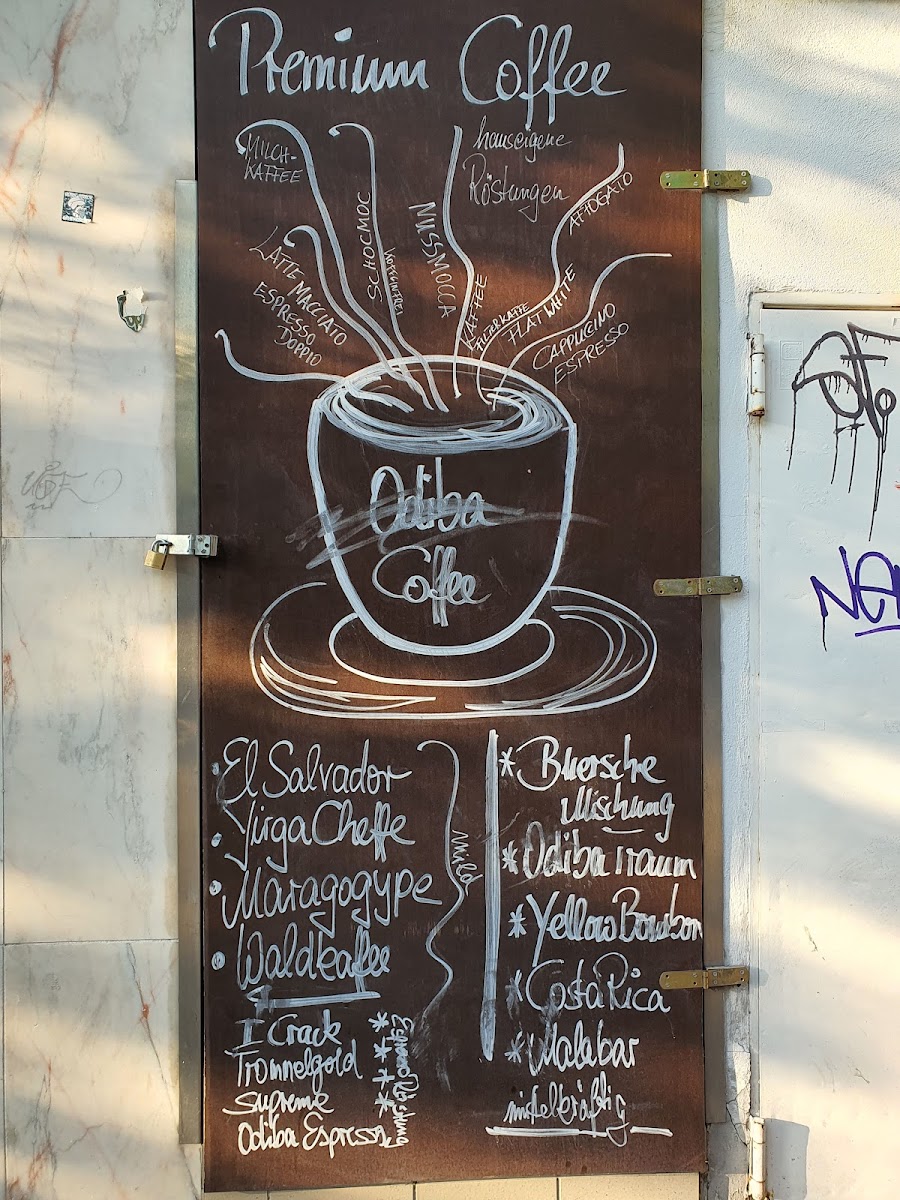 Premium Coffee
hauseigene
Röstungen
MILCH-
KAFFEE
SCHOCMOC
KOFFEINFREI
NUSSMOCCA
KAFFEE
FILTERKAFFE
FLAT WHITE
AFFOGATO
LATTE MACCIATO
ESPRESSO
DOPPIO
CAPPUCCINO
ESPRESSO
Odiba
Coffee
El Salvador
YirgaCheffe
Maragogype
Waldkaffee
mild
I Crack
Trommelgold
Supreme
Odiba Espresso
Espresso Röstung
* Buersche
Mischung
* Odiba Traum
* Yellow Bourbon
* Costa Rica
* Malabar
mittelkräftig